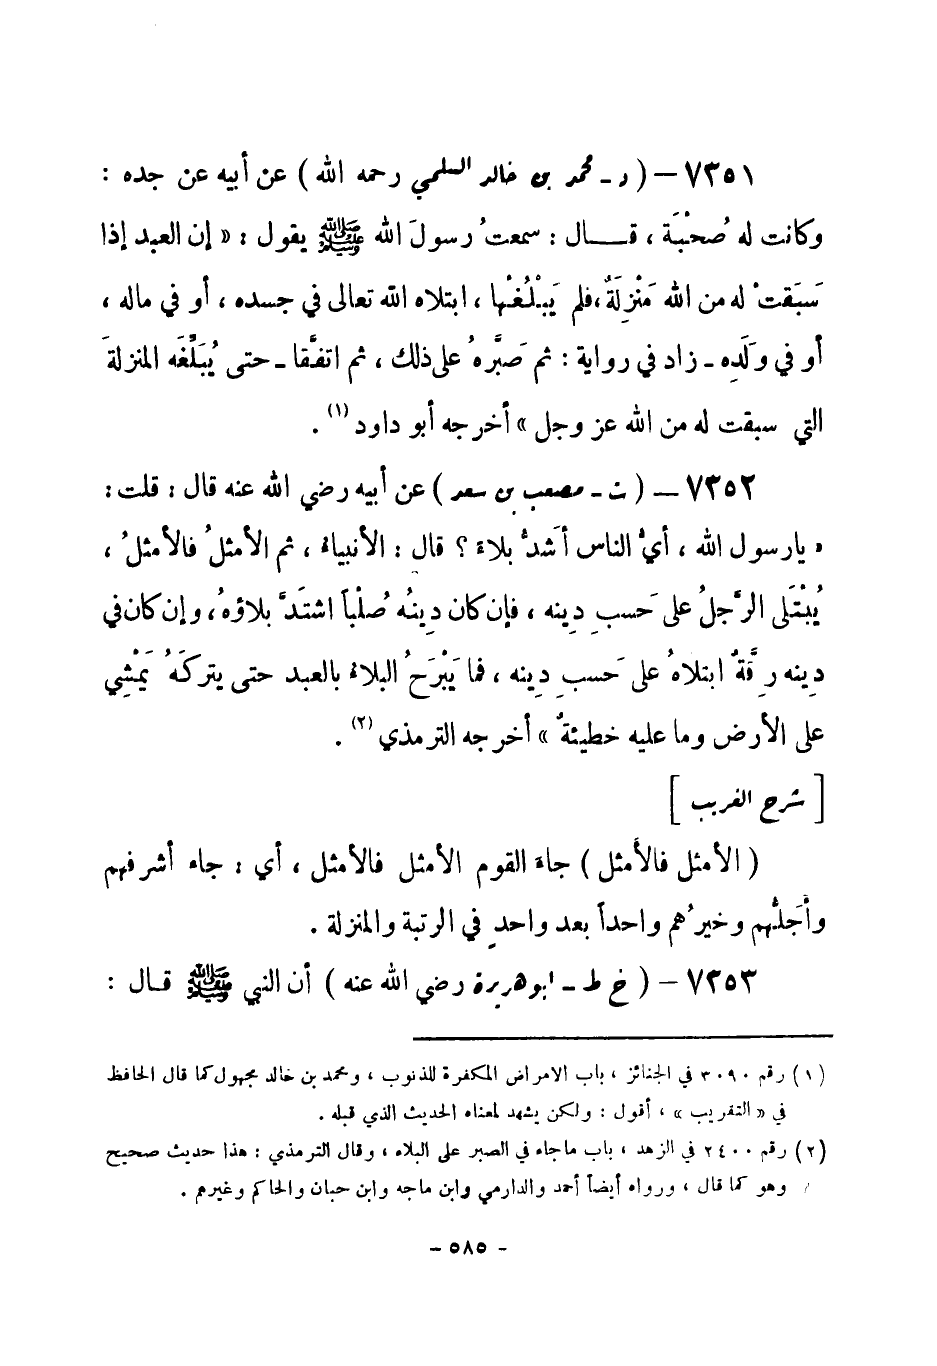 ٧٣٥١ – ( د - محمد بن خالد السلمي رحمه الله ) عن أبيه عن جده :
وكانت له صُحْبَة ، قــال : سمعتُ رسولَ الله ﷺ يقول : « إن العبد إذا
سَبَقتْ له من الله مَنْزِلَةٌ ، فلم يَبْلُغْها ، ابتلاه الله تعالى في جسده ، أو في ماله ،
أو في ولَدِه - زاد في رواية : ثم صَبَّرهُ على ذلك ، ثم اتفَّقا - حتى يُبَلِّغَه المنزلةَ
التي سبقت له من الله عز وجل » أخرجه أبو داود (١) .
٧٣٥٢ – ( ت - مصعب بن سعد ) عن أبيه رضي الله عنه قال : قلت :
« يارسول الله ، أيُّ الناس أشدُّ بلاءً ؟ قال : الأنبياءُ ، ثم الأمثلُ فالأمثلُ ،
يُبْتَلى الرَّجلُ على حَسبِ دِينه ، فإن كان دِينُه صُلْباً اشتَدَّ بلاؤهُ ، وإن كان في
دِينه رِقَّةٌ ابتلاهُ على حَسبِ دِينه ، فما يَبْرَحُ البلاءُ بالعبد حتى يتركَهُ يَمْشِي
على الأرض وما عليه خطيئةٌ » أخرجه الترمذي (٢) .
[ شرح الغريب ]
( الأمثل فالأمثل ) جاءَ القوم الأمثل فالأمثل ، أي : جاء أشرفهم
وأَجَلُّهم وخيرُهم واحداً بعد واحدٍ في الرتبة والمنزلة .
٧٣٥٣ – ( خ ط - أبو هريرة رضي الله عنه ) أن النبي ﷺ قال :
(١) رقم ٣٠٩٠ في الجنائز ، باب الامراض المكفرة للذنوب ، ومحمد بن خالد مجهول كما قال الحافظ
في « التقريب » ، أقول : ولكن يشهد لمعناه الحديث الذي قبله .
(٢) رقم ٢٤٠٠ في الزهد ، باب ماجاء في الصبر على البلاء ، وقال الترمذي : هذا حديث صحيح
وهو كما قال ، ورواه أيضاً أحمد والدارمي وابن ماجه وابن حبان والحاكم وغيرهم .
- ٥٨٥ -